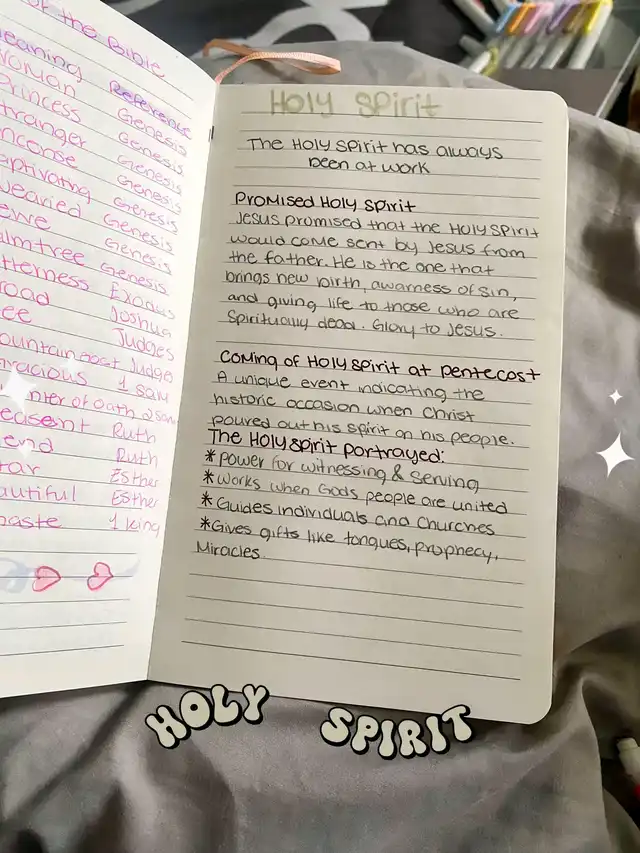 of the Bible
eaning Reference
Woman Genesis
Princess Genesis
tranger Genesis
ncense Genesis
aptivating Genesis
wearied Genesis
ewe Genesis
almtree Genesis
tterness Exodus
road Joshua
ee Judges
ountain goat Judges
racious 1 sam
nter of oath 2 sam
easent Ruth
iend Ruth
tar Esther
autiful Esther
haste 1 king
Holy Spirit
The Holy Spirit has always
been at work
Promised Holy Spirit
Jesus promised that the Holy Spirit
would come sent by Jesus from
the father. He is the one that
brings new birth, awarness of sin,
and giving life to those who are
Spiritually dead. Glory to Jesus.
Coming of Holy spirit at pentecost
A unique event indicating the
historic occasion when Christ
poured out his spirit on his people.
The Holy Spirit portrayed:
*power for witnessing & Serving
*works when Gods people are united
*Guides individuals and Churches
*Gives gifts like tongues, prophecy,
Miracles.
HOLY SPIRIT